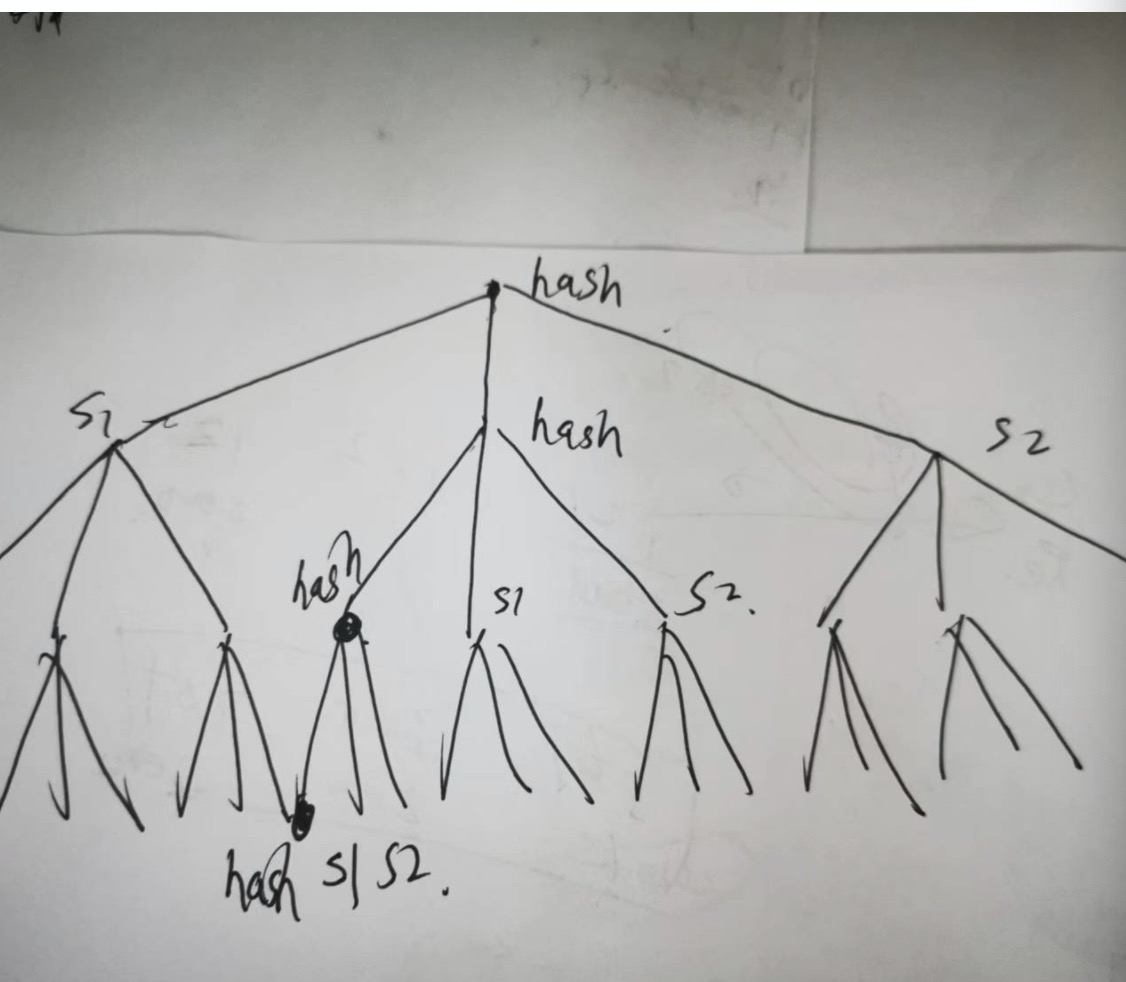 hash
S1
hash
S2
hash
S1
S2.
hash S1 S2.